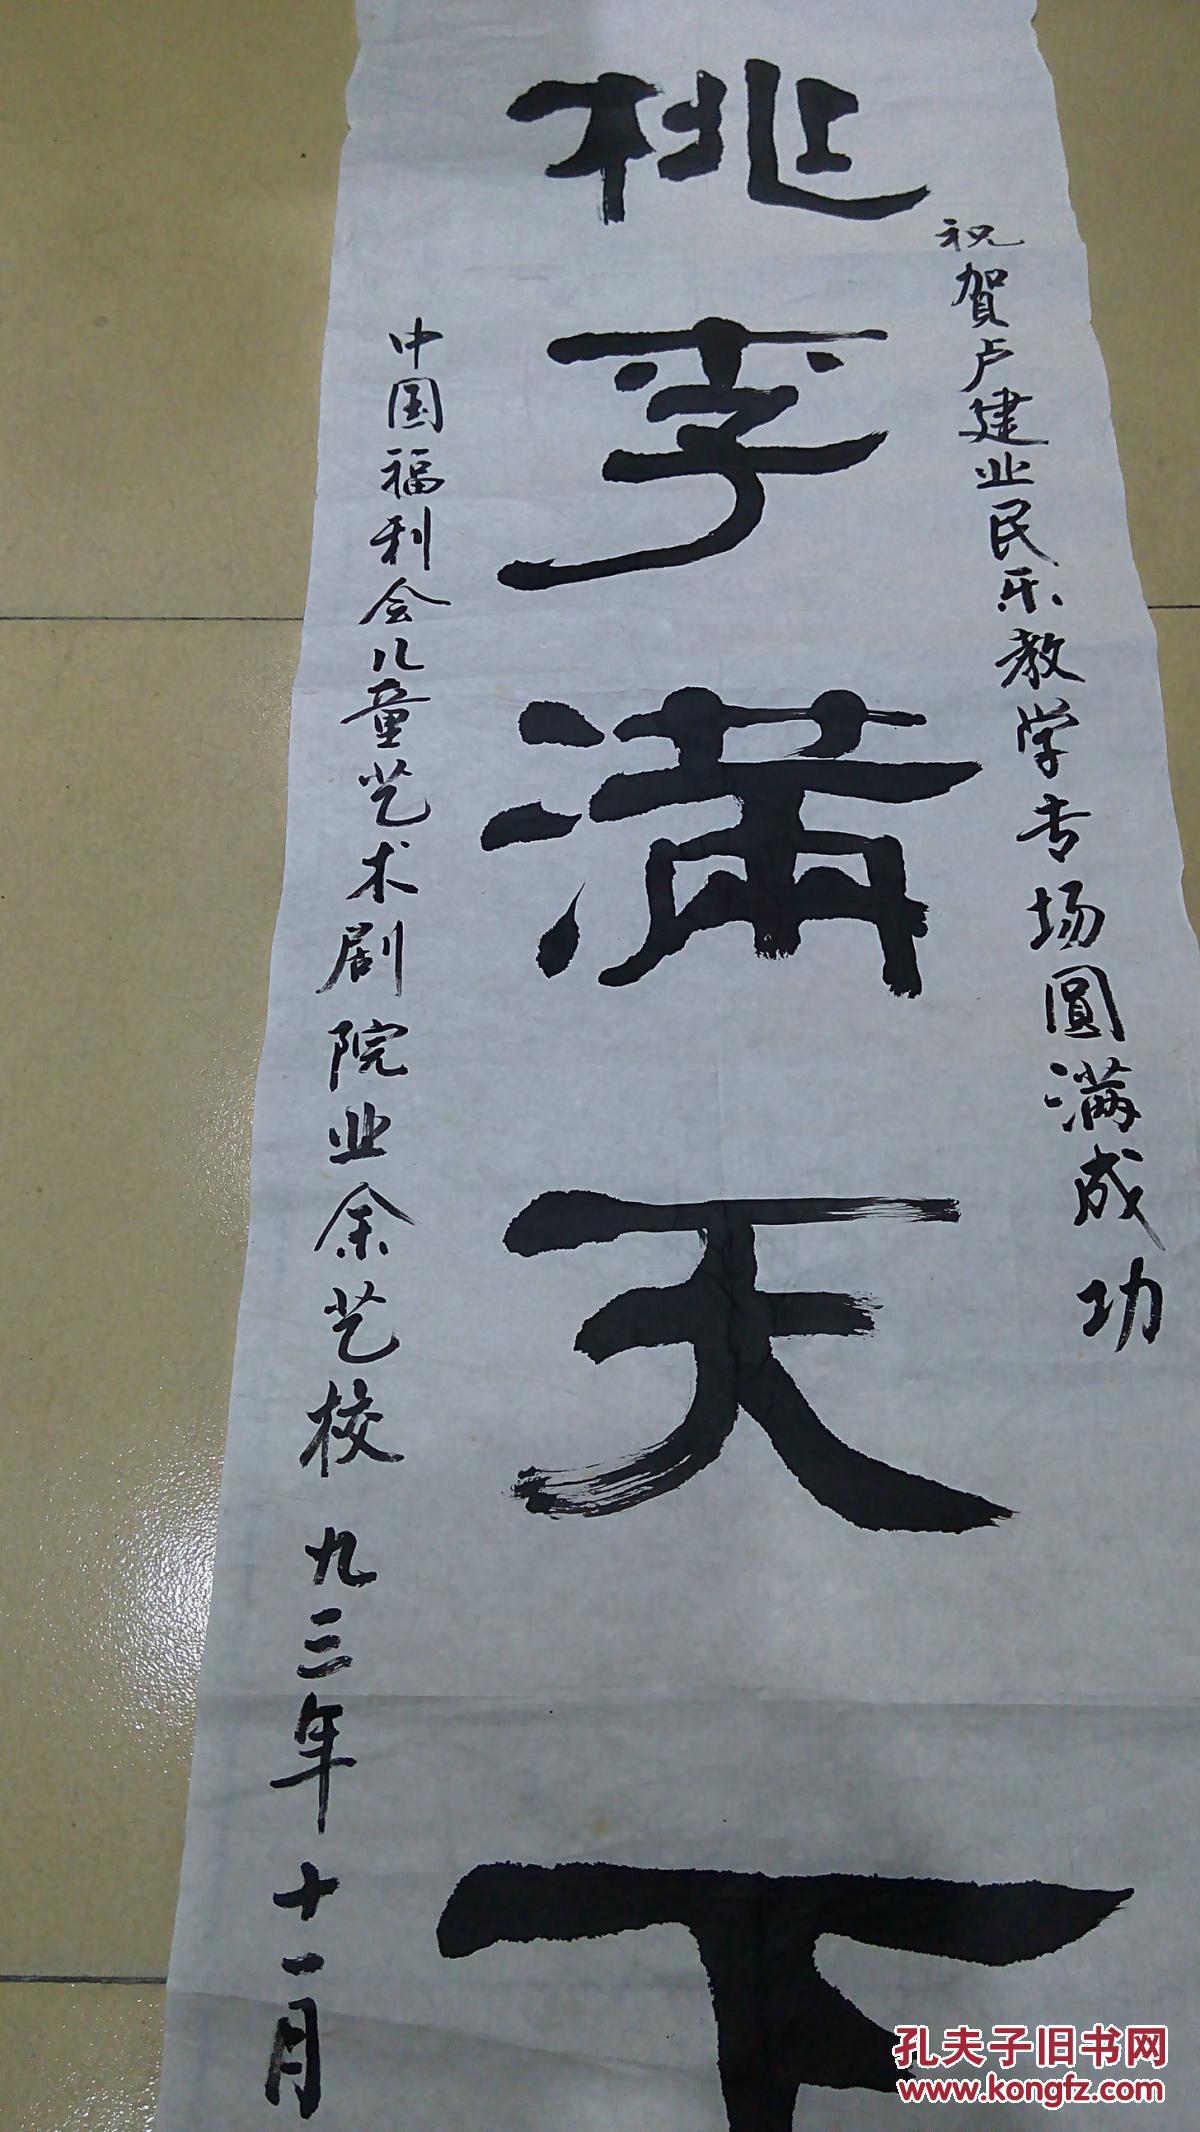 祝賀卢建业民乐教学专场圓满成功
桃李满天下
中国福利会儿童艺术剧院业余艺校 九三年十一月
孔夫子旧书网
www.kongfz.com